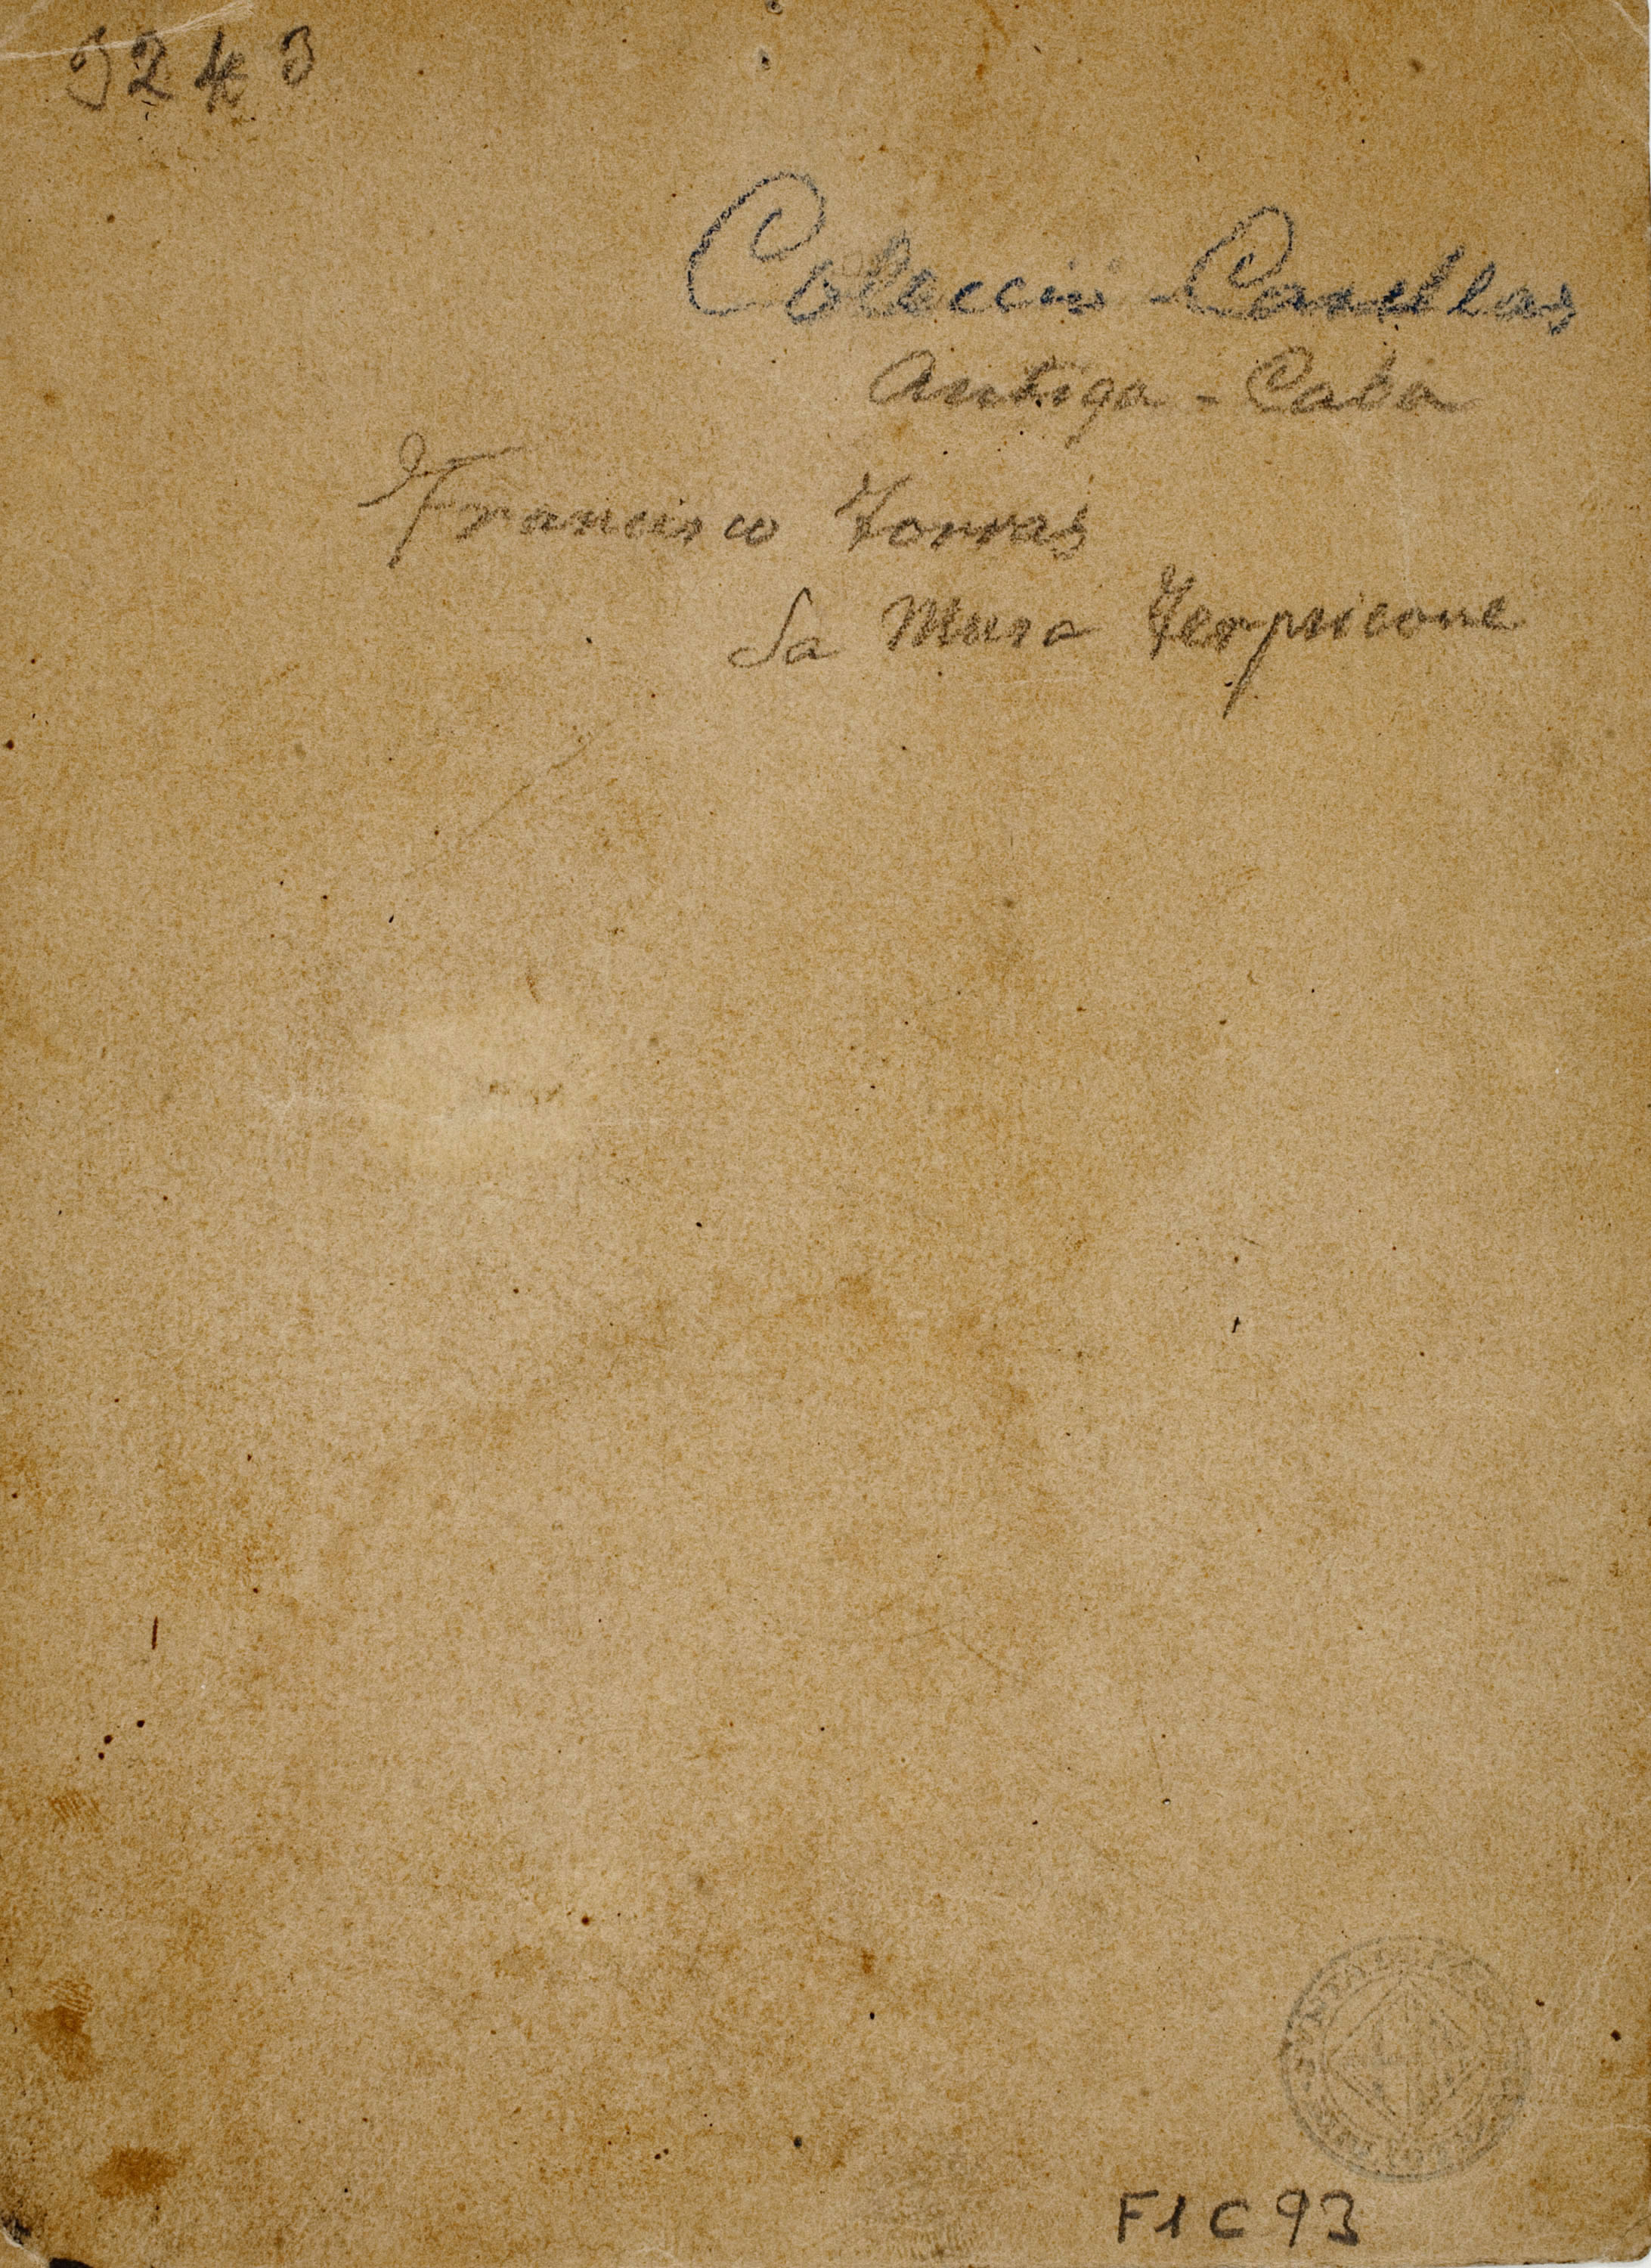 9243
Coleccio - Canellas
Antiga - Casa
Francisco Torras
La Musa Terpsicore
F1C93